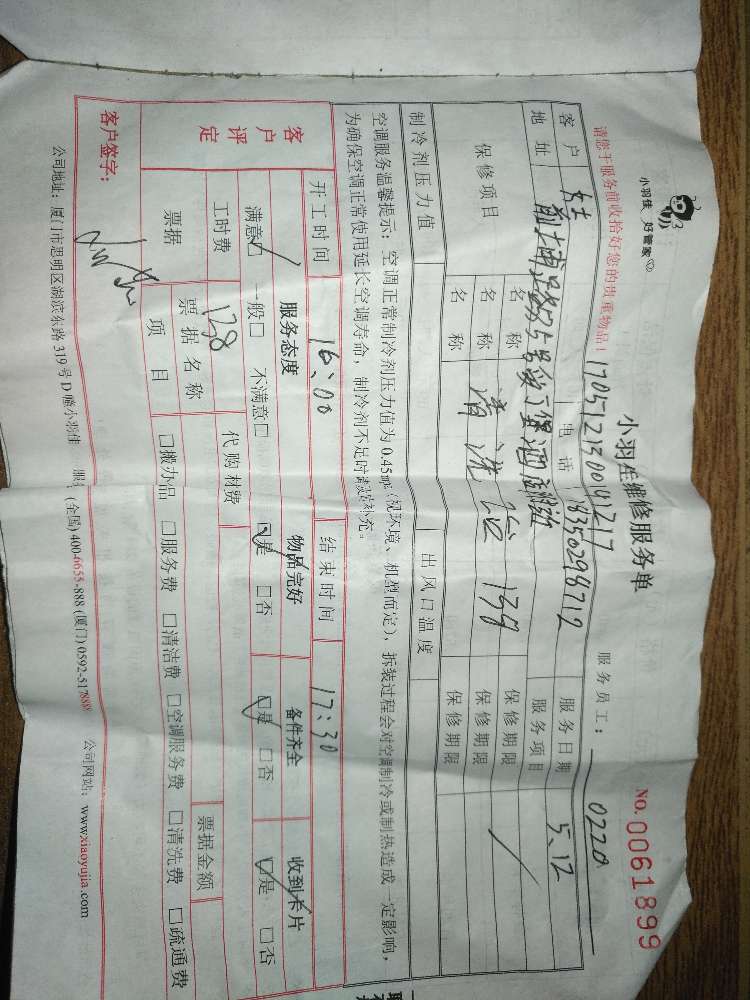 小羽佳 好管家
小羽佳维修服务单
No. 0061899
请您于服务前收拾好您的贵重物品!
170512130041217
服务员工: 0220
客户
电话 18350298712
服务日期 5.12
地址
服务项目
保修项目
名称
保修期限
名称 清洗
保修期限
名称
保修期限
制冷剂压力值
出风口温度
空调服务温馨提示: 空调正常制冷剂压力值为0.45mp(视环境、机型而定),拆装过程会对空调制冷或制热造成一定影响,
为确保空调正常使用延长空调寿命,制冷剂不足时敬请补充。
客户评定
开工时间 16:00 结束时间 17:30
服务态度 物品完好 备件齐全 收到卡片
满意□ 一般□ 不满意□ □是 □否 □是 □否 □是 □否
工时费 138 代购材费
票据 票据名称 票据金额
项目 □搬办品 □服务费 □清洁费 □空调服务费 □清洗费 □疏通费
客户签字:
公司地址: 厦门市思明区湖滨东路319号D幢小羽佳 (全国)400-6655-888 (厦门)0592-5178888 公司网站: www.xiaoyujia.com